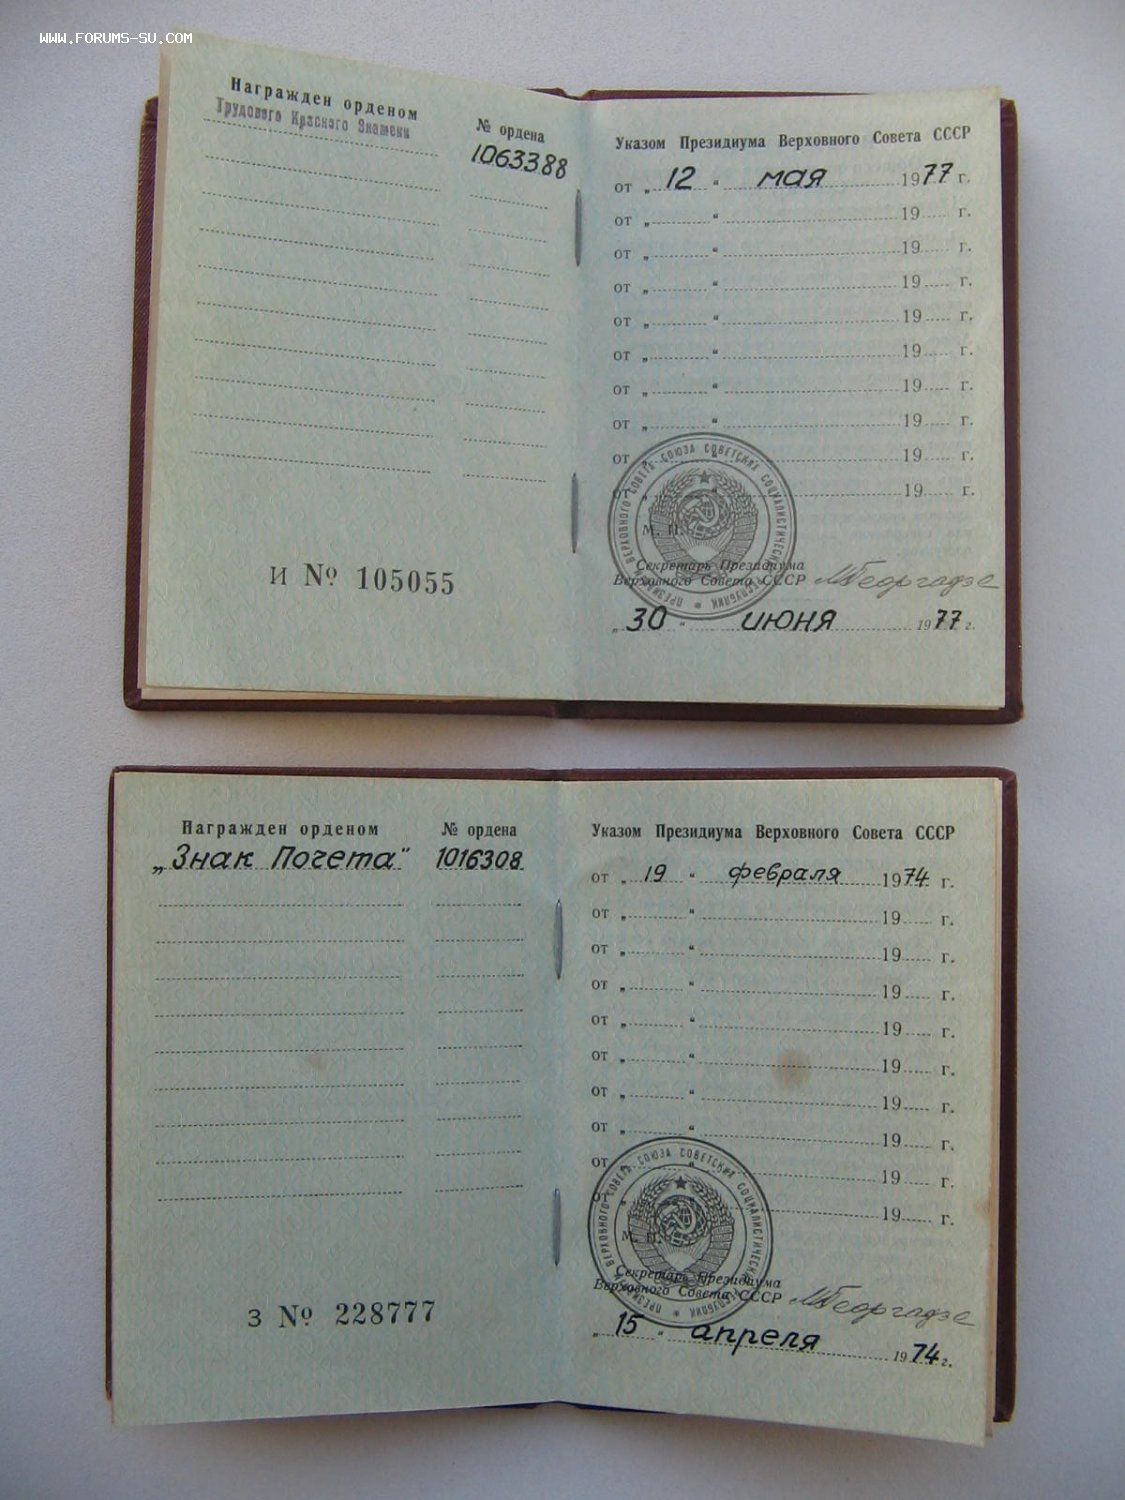 www.FORUMS-SU.COM
Награжден орденом
№ ордена
Трудового Красного Знамени
1063388
Указом Президиума Верховного Совета СССР
от „ 12 “ мая 1977 г.
от „ “ 19 г.
от „ “ 19 г.
от „ “ 19 г.
от „ “ 19 г.
от „ “ 19 г.
от „ “ 19 г.
от „ “ 19 г.
от „ “ 19 г.
от „ 19 г.
ПРЕЗИДИУМ ВЕРХОВНОГО СОВЕТА СОЮЗА СОВЕТСКИХ СОЦИАЛИСТИЧЕСКИХ РЕСПУБЛИК
М. П.
Секретарь Президиума
Верховного Совета СССР МГеоргадзе
„ 30 “ июня 1977 г.
И № 105055
Награжден орденом № ордена
„Знак Почета“ 1016308
Указом Президиума Верховного Совета СССР
от „ 19 “ февраля 1974 г.
от „ “ 19 г.
от „ “ 19 г.
от „ “ 19 г.
от „ “ 19 г.
от „ “ 19 г.
от „ “ 19 г.
от „ “ 19 г.
от „ “ 19 г.
от „ 19 г.
ПРЕЗИДИУМ ВЕРХОВНОГО СОВЕТА СОЮЗА СОВЕТСКИХ СОЦИАЛИСТИЧЕСКИХ РЕСПУБЛИК
М. П.
Секретарь Президиума
Верховного Совета СССР МГеоргадзе
„ 15 “ апреля 1974 г.
З № 228777